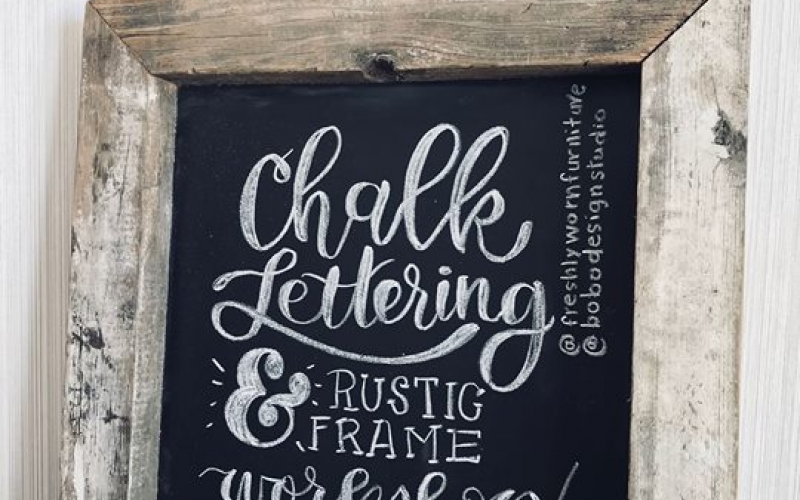 Chalk
Lettering
& RUSTIC
FRAME
@freshlywornfurniture
@bobodesignstudio